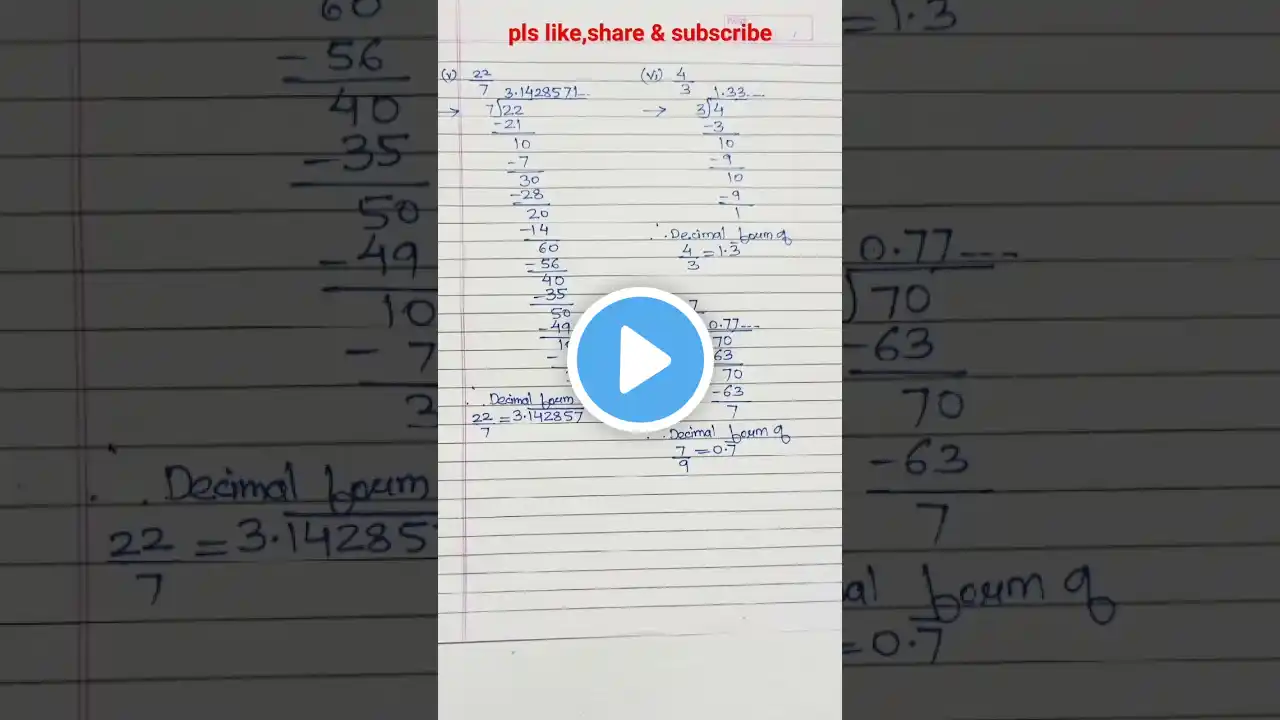 pls like,share & subscribe
(v) 22/7
3.1428571...
7)22
-21
10
-7
30
-28
20
-14
60
-56
40
-35
50
-49
Decimal form
22/7 = 3.142857
(vi) 4/3
1.33....
3)4
-3
10
-9
10
-9
1
∴ Decimal form of
4/3 = 1.3
7
0.77---
70
63
70
-63
7
∴ Decimal form of
7/9 = 0.7
60
-56
40
-35
50
-49
10
-7
Decimal form
22/7 = 3.14285
=1.3
0.77---
70
-63
70
-63
7
al form of
=0.7